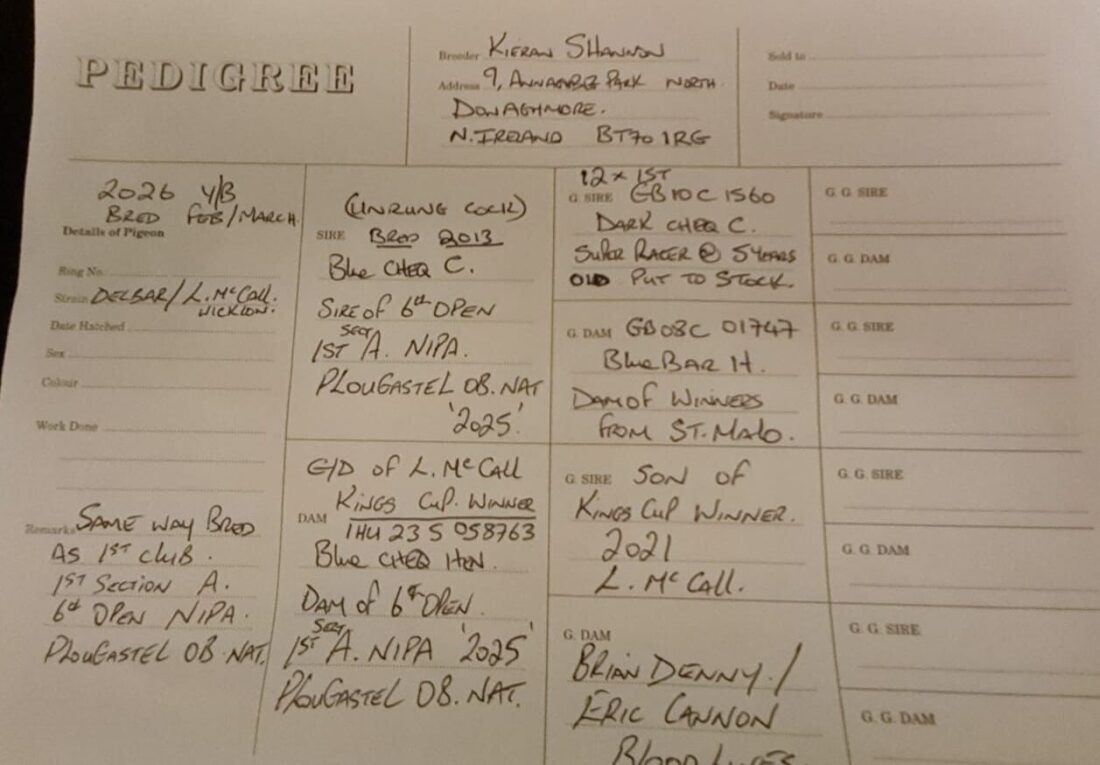 PEDIGREE
Breeder KIERAN SHANNON
Address 9, PARK NORTH
DONAGHMORE.
N. IRELAND BT70 1RG
Sold to
Date
Signature
2026 Y/B
BRED FEB/MARCH
Details of Pigeon
Ring No.
Strain DELBAR/L. McCALL.
WICKLOW.
Date Hatched
Sex
Colour
Work Done
Remarks SAME WAY BRED
AS 1ST CLUB.
1ST SECTION A.
6th OPEN NIPA.
PLOUGASTEL OB NAT.
(UNRUNG COCK)
SIRE BRED 2013
Blue CHEQ C.
SIRE OF 6th OPEN
1ST SECT A. NIPA.
PLOUGASTEL OB. NAT
'2025'
G/D OF L. McCALL
KINGS CUP. WINNER
DAM IHU 23 S 058763
Blue CHEQ HEN.
DAM OF 6th OPEN.
1ST SECT A. NIPA '2025'
PLOUGASTEL OB. NAT.
12 x 1ST
G. SIRE GB10C 1560
DARK CHEQ C.
SUPER RACER @ 5 YEARS
OLD PUT TO STOCK.
G. DAM GB08C 01747
Blue BAR H.
DAM OF WINNERS
FROM ST. MALO.
G. SIRE SON OF
KINGS CUP WINNER.
2021
L. McCALL.
G. DAM
BRIAN DENNY /
ERIC CANNON
BLOODLINES
G. G. SIRE
G. G. DAM
G. G. SIRE
G. G. DAM
G. G. SIRE
G. G. DAM
G. G. SIRE
G. G. DAM